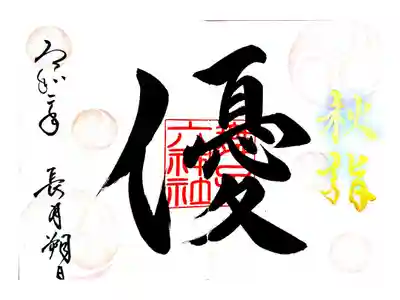 秋詣
優
六神社
令和二年
長月朔日